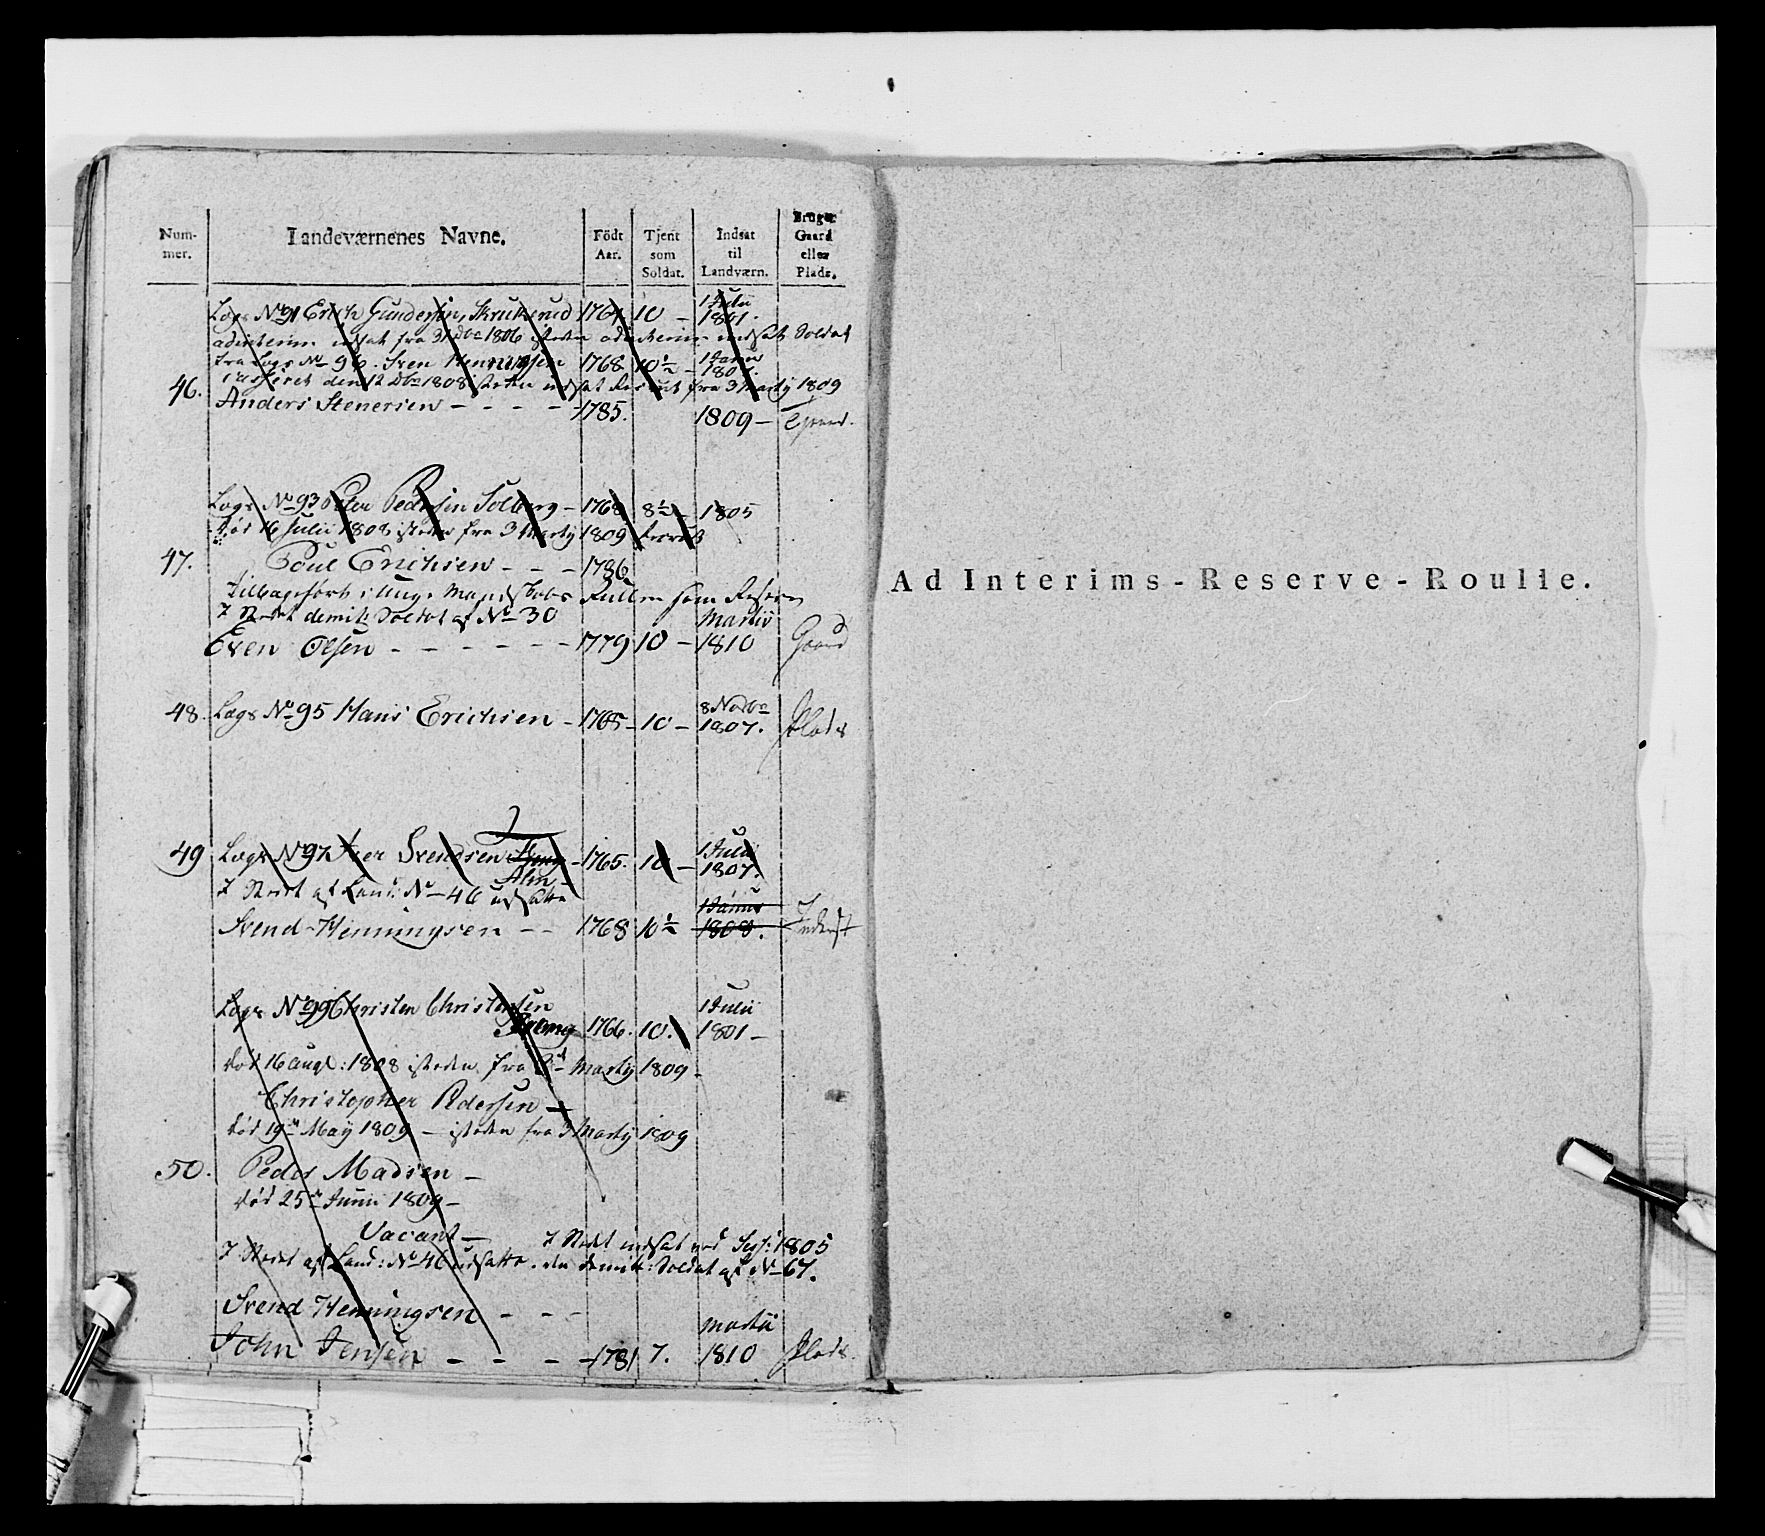 Num-
mer.
Landeværnenes Navne.
Födt
Aar.
Tjent
som
Soldat.
Indsat
til
Landværn.
Bruger
Gaard
eller
Plads.
Lægs No 91 Erich Gundersen, Skrukerud 1764 10 – 1 Julii 1801.
adinterim indsat fra 31 Dbr 1806 isteden adinterim indsat Soldat
fra Lægs No 96. Sven Henningsen 1768 10½ – 1 Januar 1807.
Casseret den 12 Dbr 1808 isteden indsat Recrut fra 3 Marty 1809
46. Anders Stenersen – – – – 1785. 1809 –
Lægs No 93 Peder Pedersen Solberg – 1768 8½ – 1805
død 16 Julii 1808 isteden fra 3 Marty 1809 Recrut
47. Poul Erichsen – – – 1786
Tilbageført i Unge Mandskabs Rullen som Reserve
I Stedet demit: Soldat af No 30
Even Olsen – – – – – – 1779 10 – Martii 1810 Gaard
48. Lægs No 95 Hans Erichsen – 1765 – 10 – 8 Novbr 1807. Plads
49 Lægs No 97 Iver Svendsen Alm – 1765. 10 – 1 Julii 1807.
I Stedet af Land: No 46 udsatte
Svend Henningsen – – 1768 10½ 1 Januar 1808. Inderst
Lægs No 99 Christen Christensen
1766. 10. 1 Julii 1801 –
død 16 Augt: 1808 isteden fra 3d Marty 1809 –
Christopher Pedersen –
død 19de May 1809 – isteden fra 3 Marty 1809
50. Peder Madsen –
død 25de Junii 1809 –
Vacant – I Stedet indsat ved Sess: 1805
I Stedet af Land: No 46 udsatte. den demitt: Soldat af No 67.
Svend Henningsen – – –
John Jensen – – – – 1781 7. Martii 1810 Plads.
Ad Interims-Reserve-Roulle.